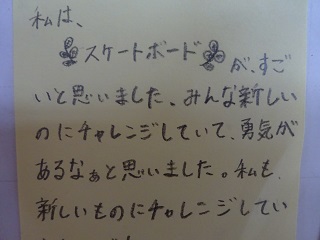 私は、
スケートボードが、すご
いと思いました。みんな新しい
のにチャレンジしていて、勇気が
あるなぁと思いました。私も、
新しいものにチャレンジしてい